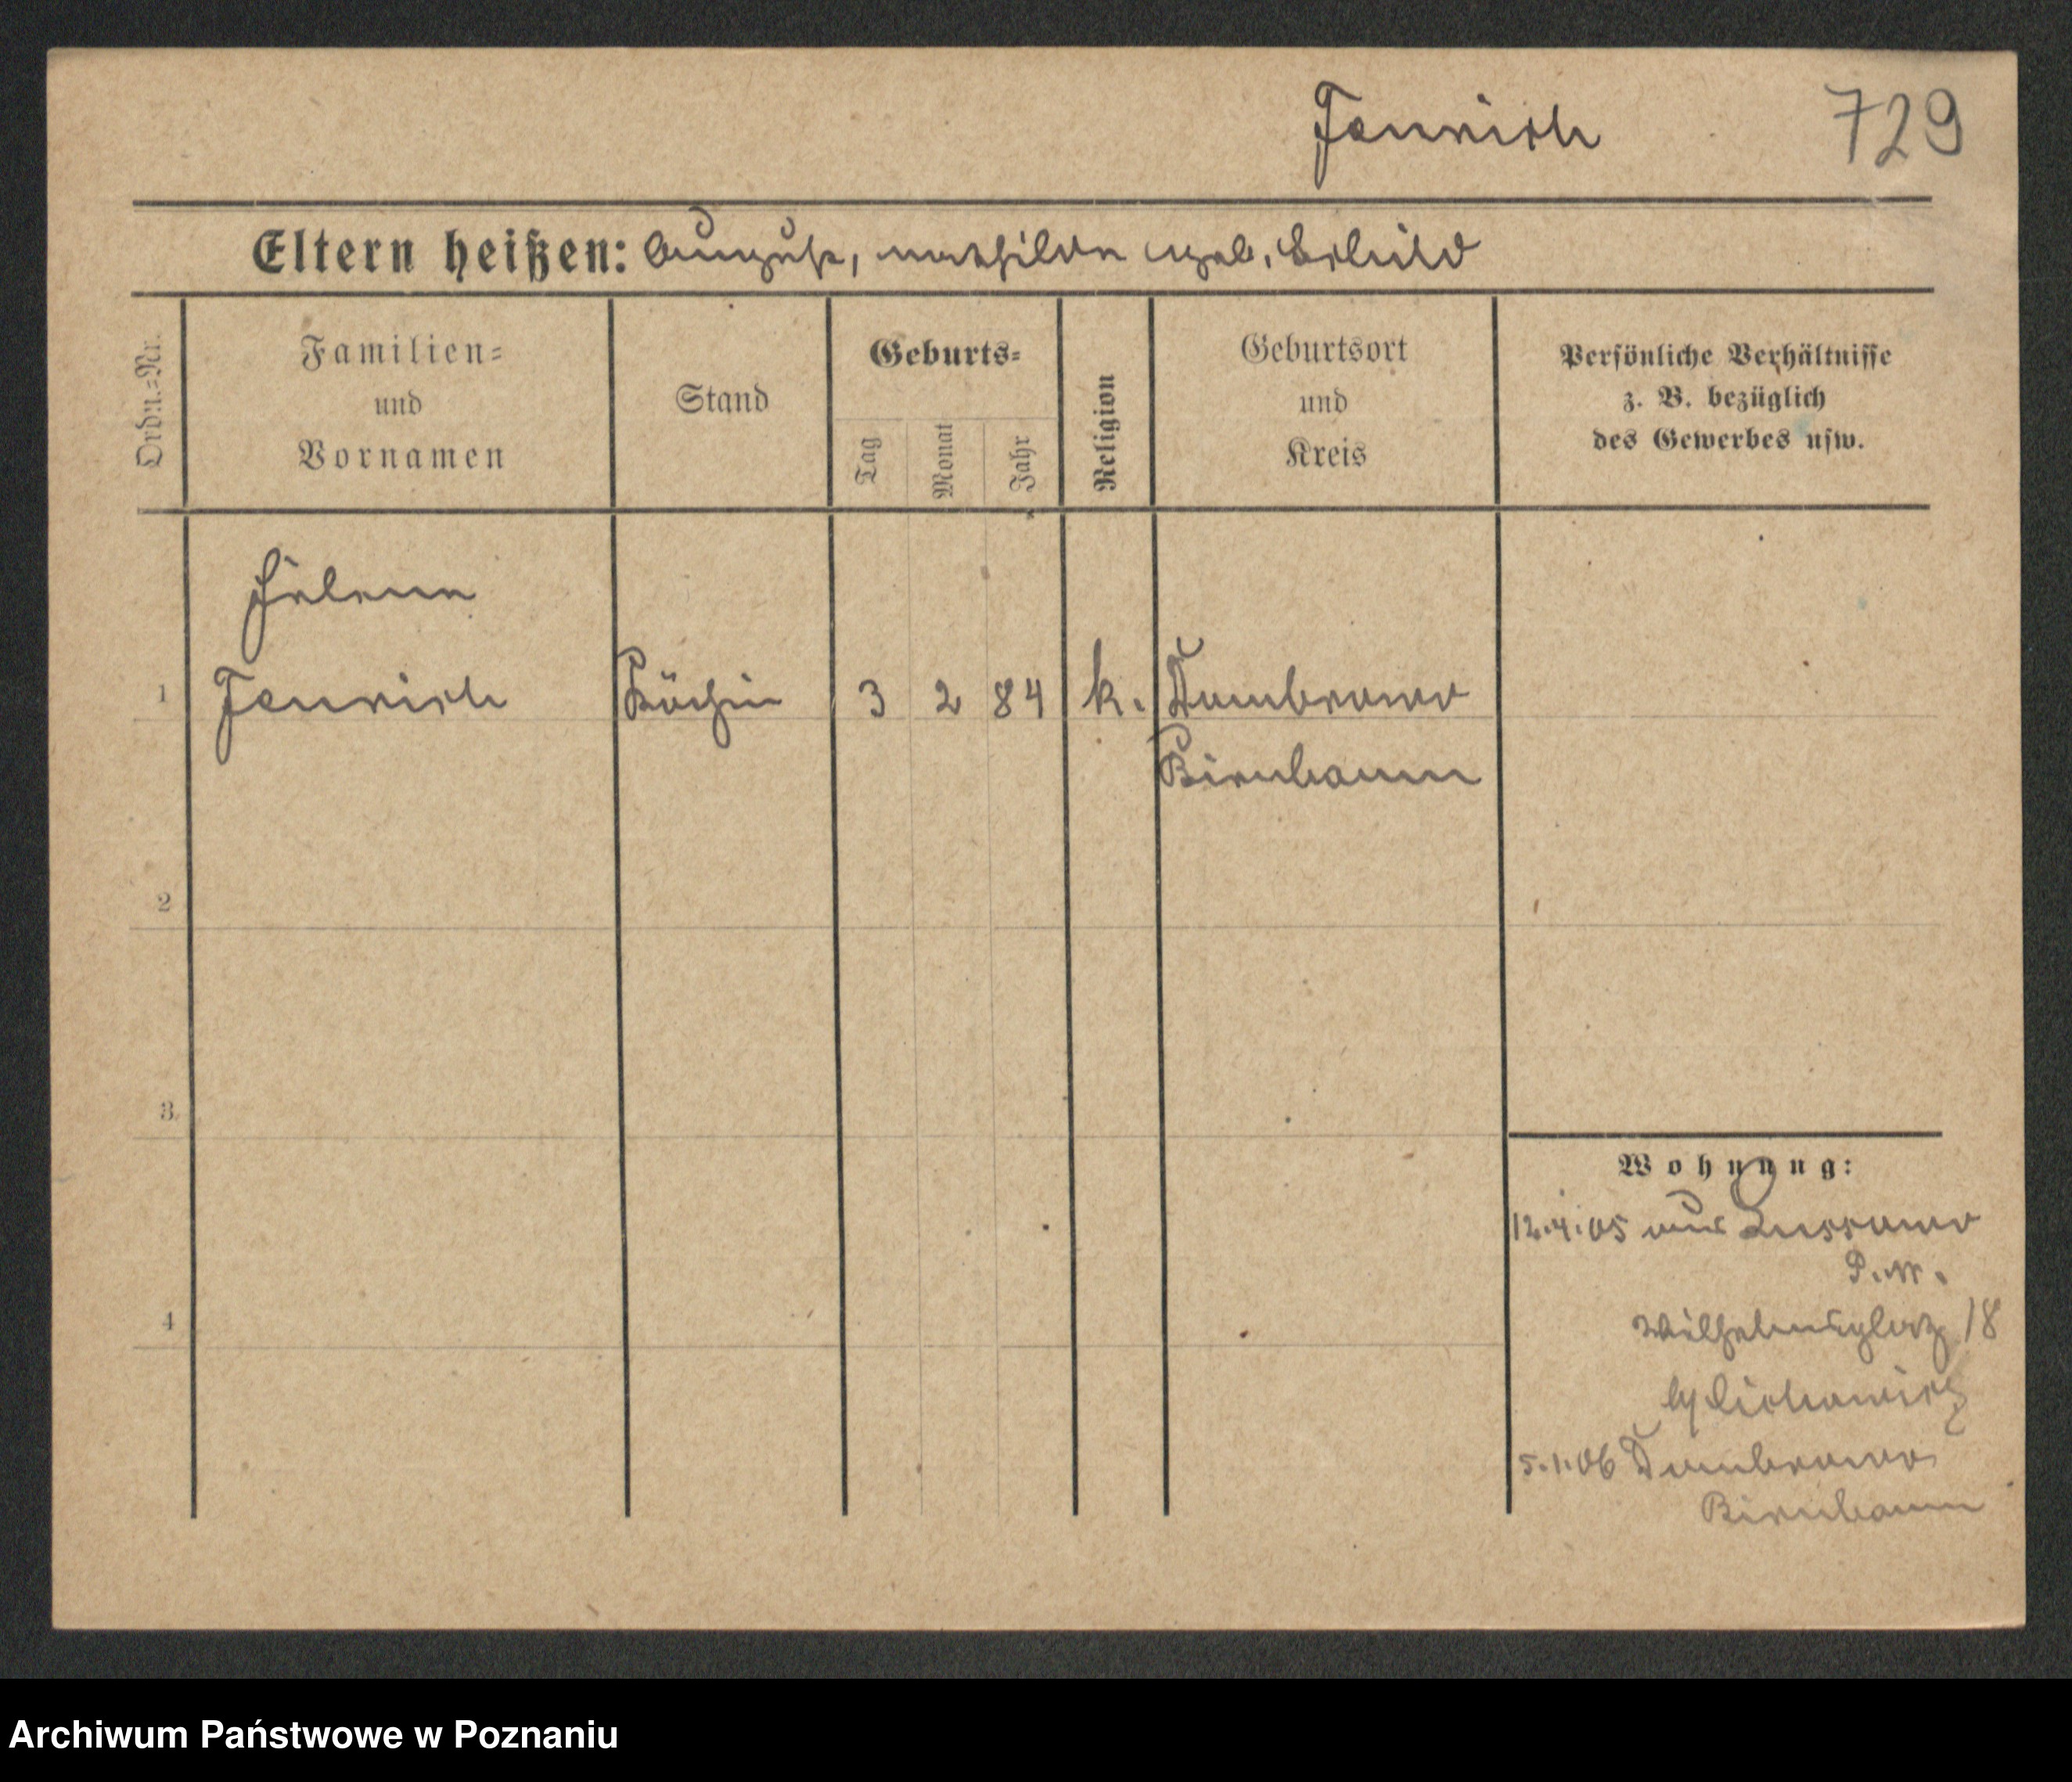 Fenrich 729
Eltern heißen: August, Mathilde geb. Schild
Ordn.=Nr.
Familien=
und
Vornamen
Stand
Geburts=
Tag
Monat
Jahr
Religion
Geburtsort
und
Kreis
Persönliche Verhältnisse
z. B. bezüglich
des Gewerbes usw.
Helene
1 Fenrich Köchin 3 2 84 k. Dombrowo
Birnbaum
2
3
4
Wohnung:
12.4.05 aus Lussowo
P.W.
Wilhelmsplatz 18
5.1.06 Dombrowo
Birnbaum
Archiwum Państwowe w Poznaniu